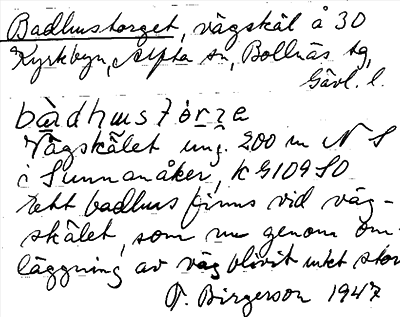 Badhustorget, vägskäl å 30
Kyrkbyn, Alfta sn, Bollnäs tg,
Gävl. l.
bàdhustórze
Vägskälet ung. 200 m N S
i Sunnanåker, k G 109 SO
Ett badhus finns vid väg-
skälet, som nu genom om-
läggning av väg blivit intet stor
T. Birgerson 1947